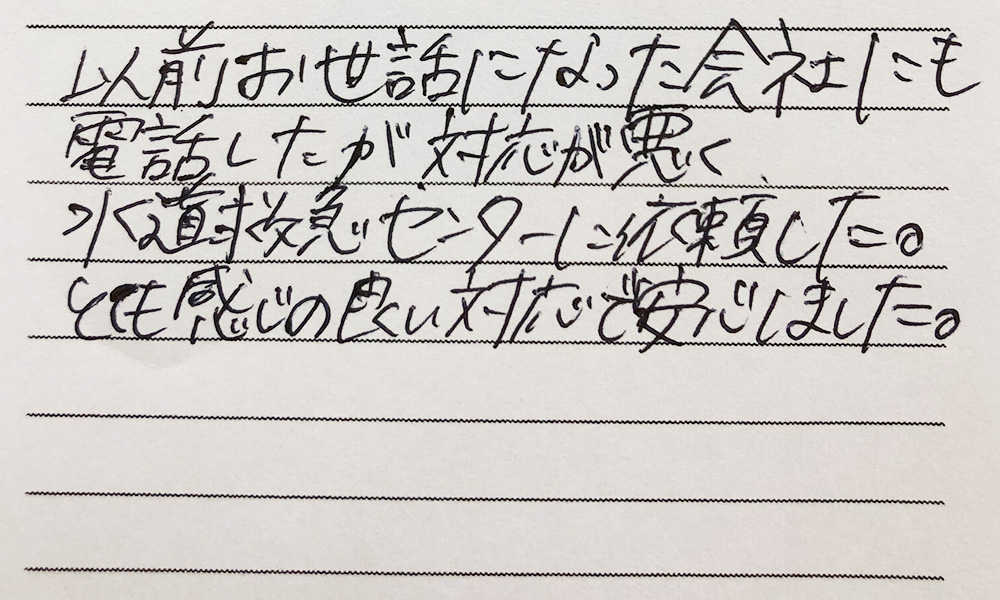 以前お世話になった会社にも
電話したが対応が悪く
水道救急センターに依頼した。
とても感じの良い対応で安心しました。